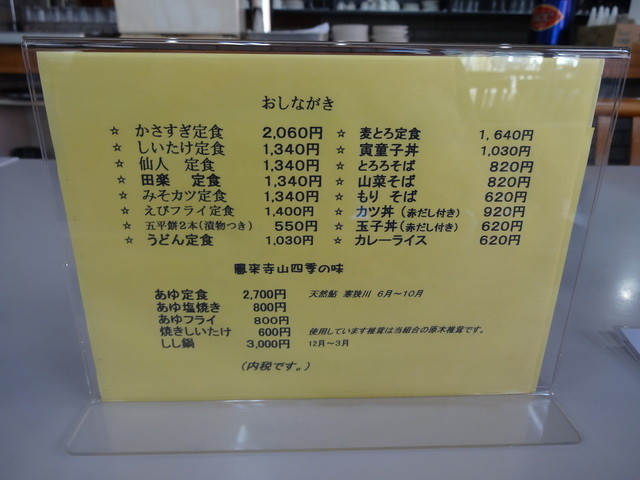 おしながき
☆ かさすぎ定食 2,060円
☆ しいたけ定食 1,340円
☆ 仙人 定食 1,340円
☆ 田楽 定食 1,340円
☆ みそカツ定食 1,340円
☆ えびフライ定食 1,400円
☆ 五平餅2本(漬物つき) 550円
☆ うどん定食 1,030円
☆ 麦とろ定食 1,640円
☆ 寅童子丼 1,030円
☆ とろろそば 820円
☆ 山菜そば 820円
☆ もり そば 620円
☆ カツ丼(赤だし付き) 920円
☆ 玉子丼(赤だし付き) 620円
☆ カレーライス 620円
鳳来寺山四季の味
あゆ定食 2,700円 天然鮎 寒狭川 6月~10月
あゆ塩焼き 800円
あゆフライ 800円
焼きしいたけ 600円 使用しています椎茸は当組合の原木椎茸です。
しし鍋 3,000円 12月~3月
(内税です。)